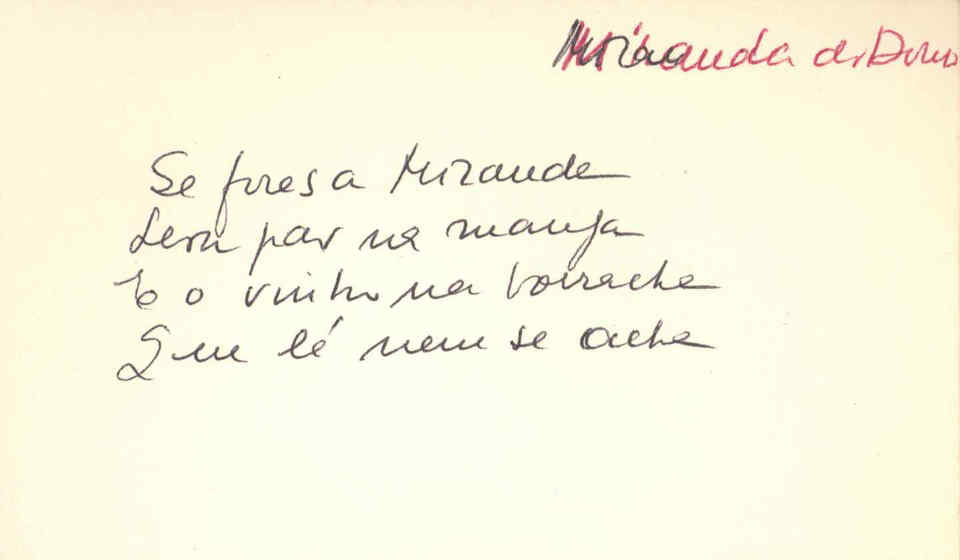 Miranda do Douro
Se fores a Miranda
Leva pão na manga
E o vinho na borracha
Que lá nem se acha